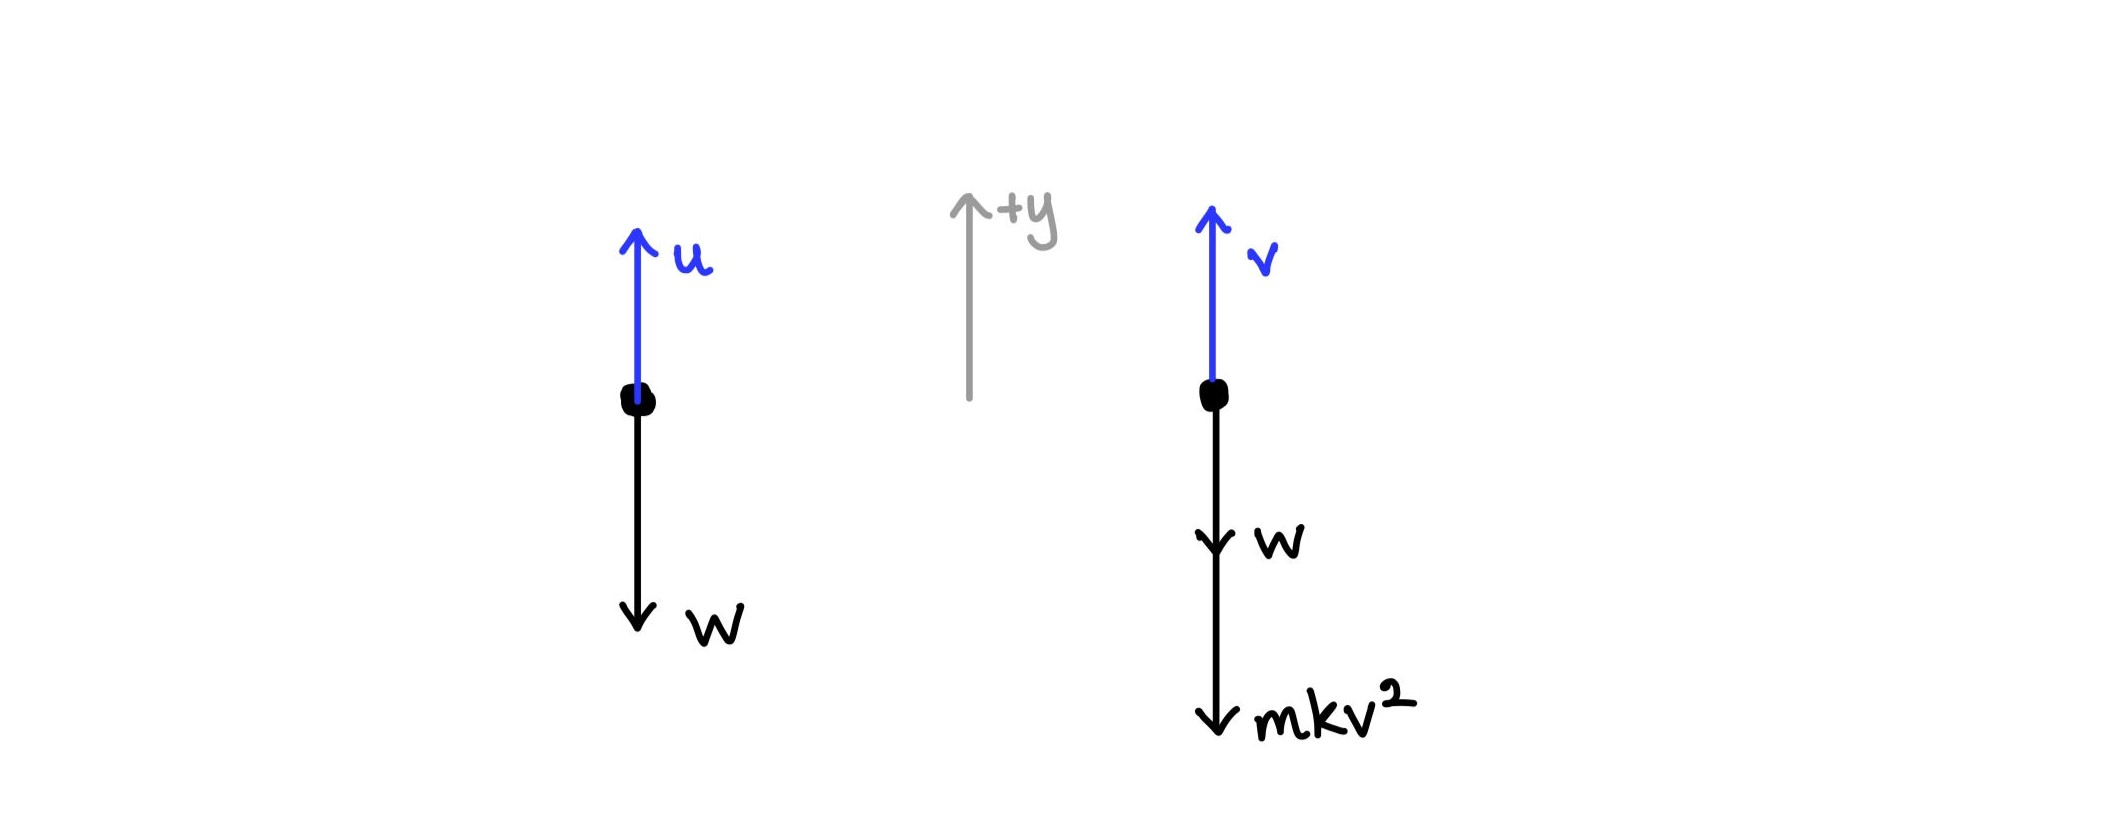 u
W
+y
v
W
mkv²